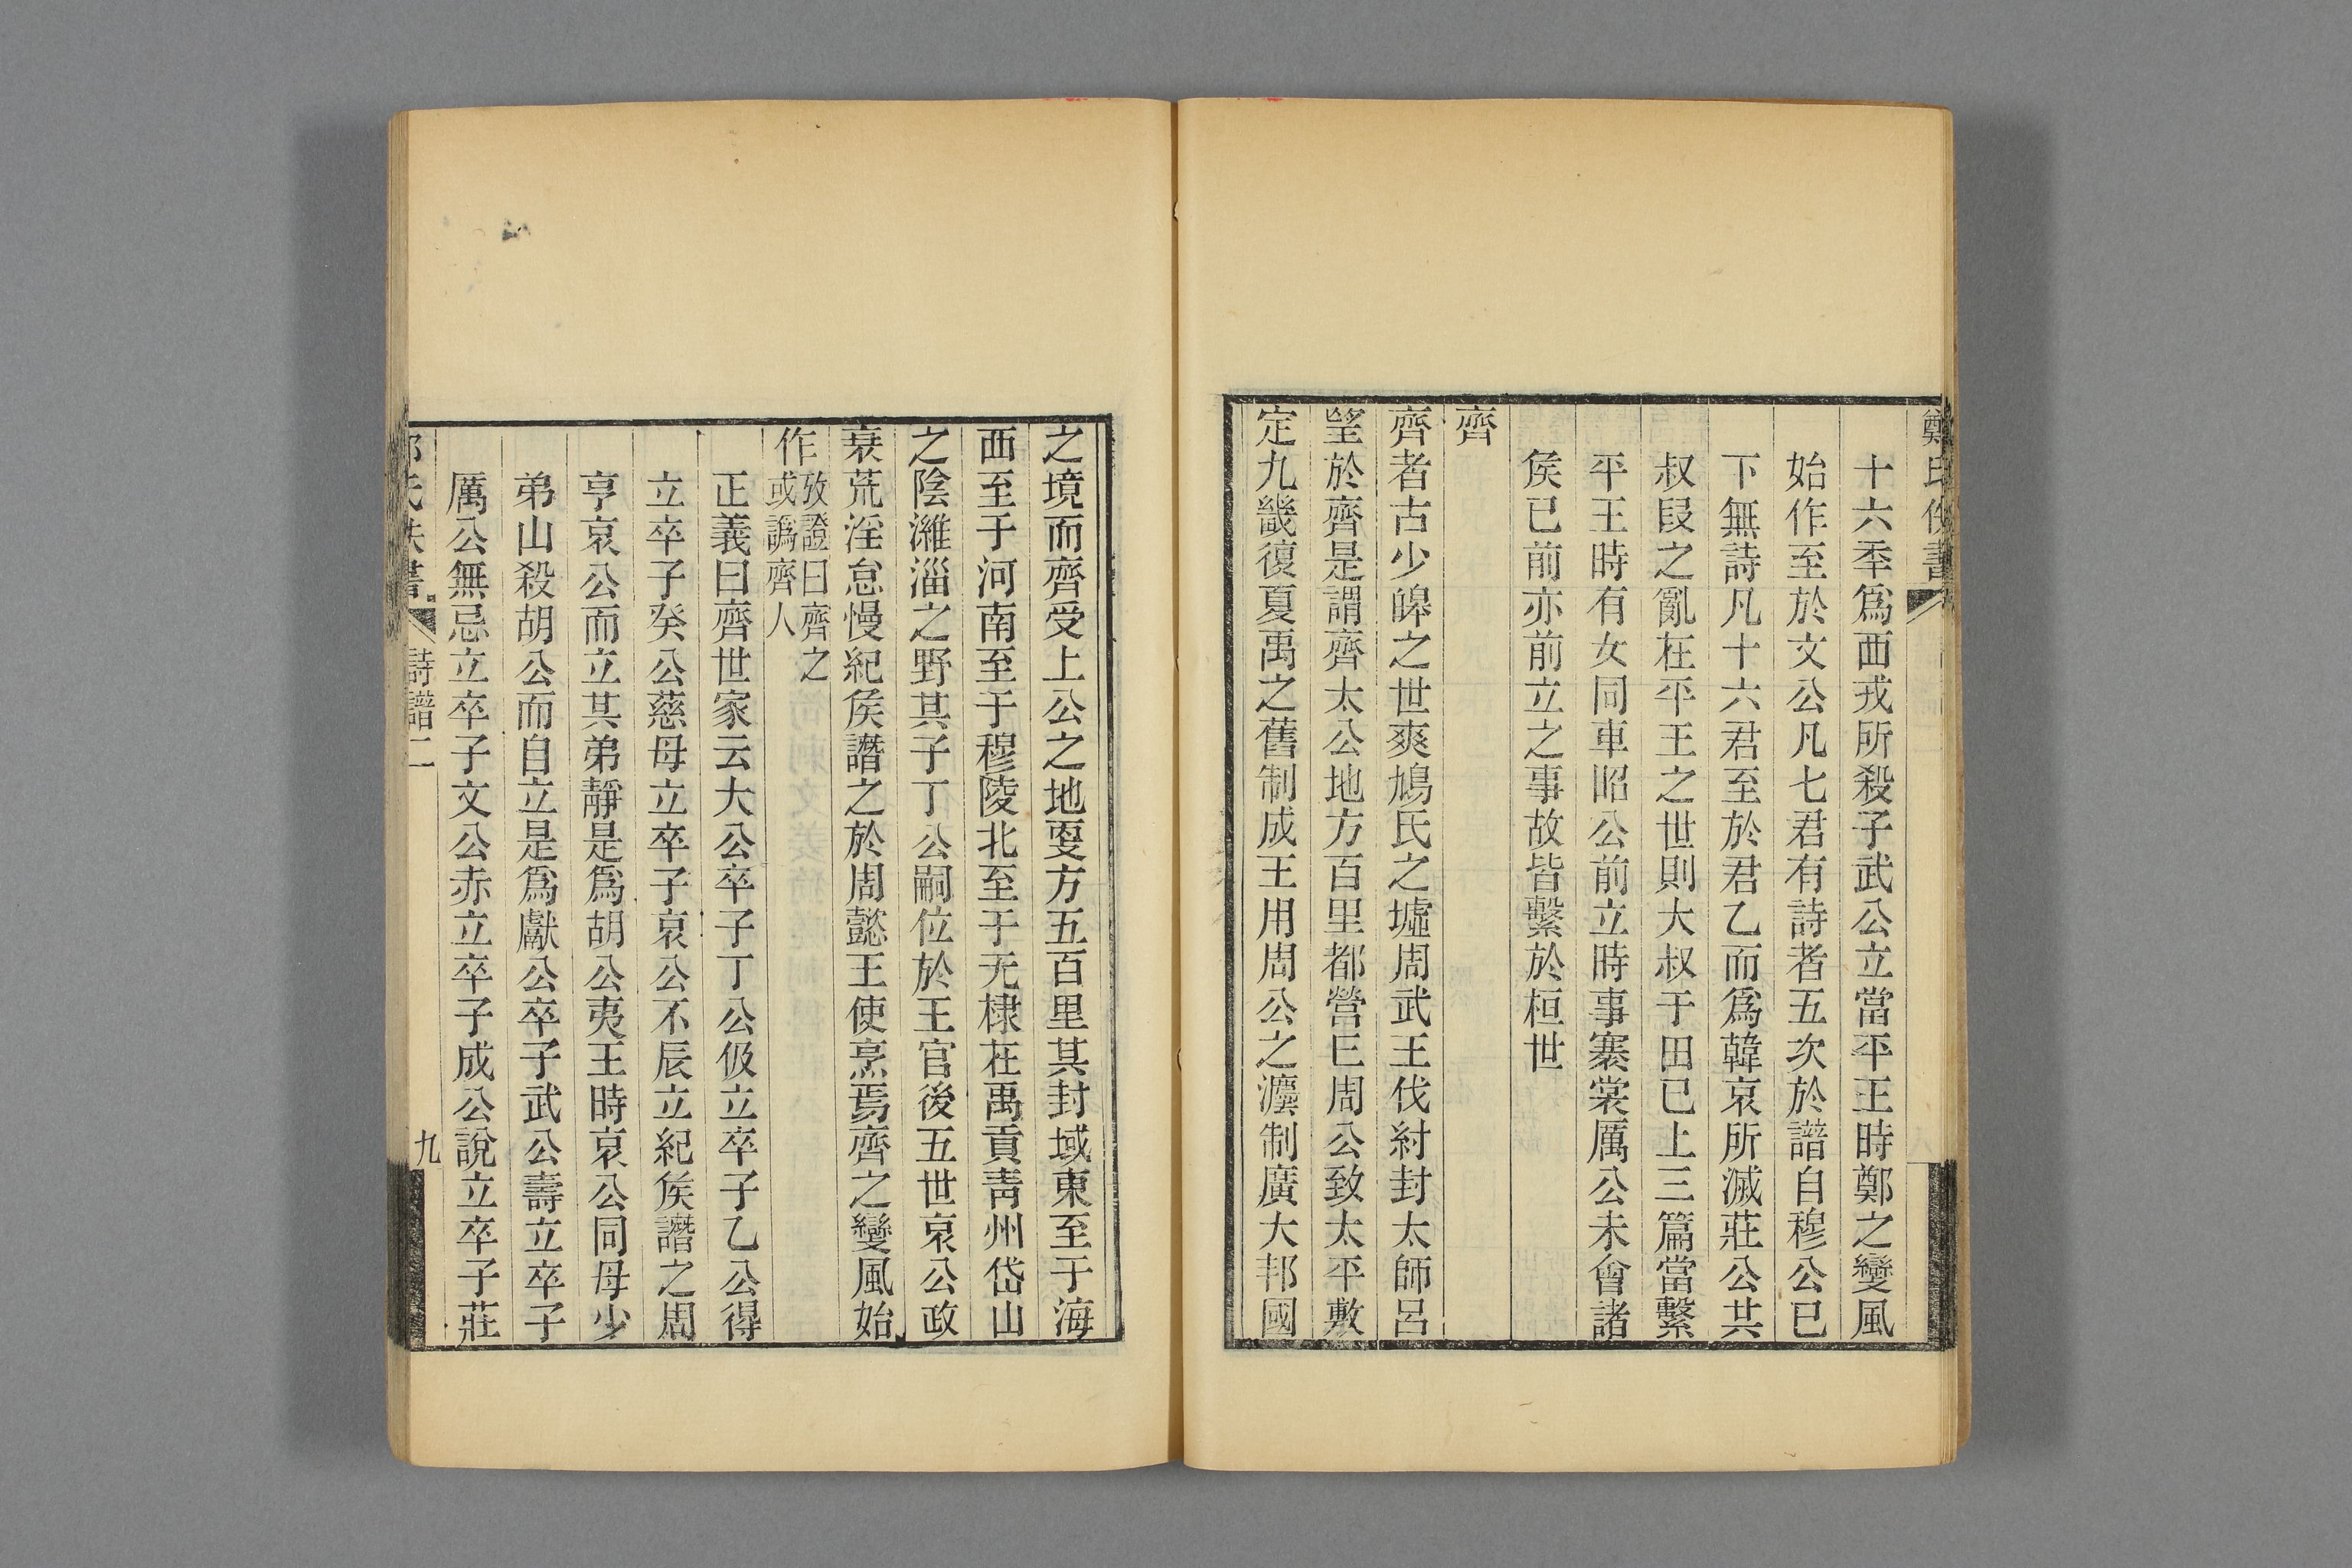 鄭氏佚書
十六秊爲西戎所殺子武公立當平王時鄭之變風
始作至於文公凡七君有詩者五次於譜自穆公已
下無詩凡十六君至於君乙而爲韓哀所滅莊公共
叔段之亂在平王之世則大叔于田已上三篇當繫
平王時有女同車昭公前立時事褰裳厲公未會諸
矦已前亦前立之事故皆繫於桓世
齊
齊者古少皥之世爽鳩氏之墟周武王伐紂封太師呂
望於齊是謂齊太公地方百里都營㠯周公致太平敷
定九畿復夏禹之舊制成王用周公之灋制廣大邦國
之境而齊受上公之地㪅方五百里其封域東至于海
西至于河南至于穆陵北至于无棣在禹貢青州岱山
之陰濰淄之野其子丁公嗣位於王官後五世哀公政
衰荒淫怠慢紀矦譖之於周懿王使烹焉齊之變風始
作攷證曰齊之
或譌齊人
正義曰齊世家云大公卒子丁公伋立卒子乙公得
立卒子癸公慈母立卒子哀公不辰立紀矦譖之周
亨哀公而立其弟靜是爲胡公夷王時哀公同母少
弟山殺胡公而自立是爲獻公卒子武公壽立卒子
厲公無忌立卒子文公赤立卒子成公說立卒子莊
詩譜二
九